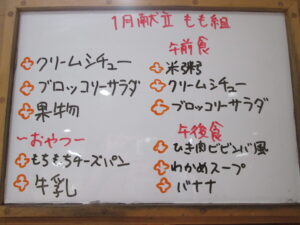 1月献立 もも組
クリームシチュー
ブロッコリーサラダ
果物
〜おやつ〜
もちもちチーズパン
牛乳
午前食
米粥
クリームシチュー
ブロッコリーサラダ
午後食
ひき肉ビビンバ風
わかめスープ
バナナ